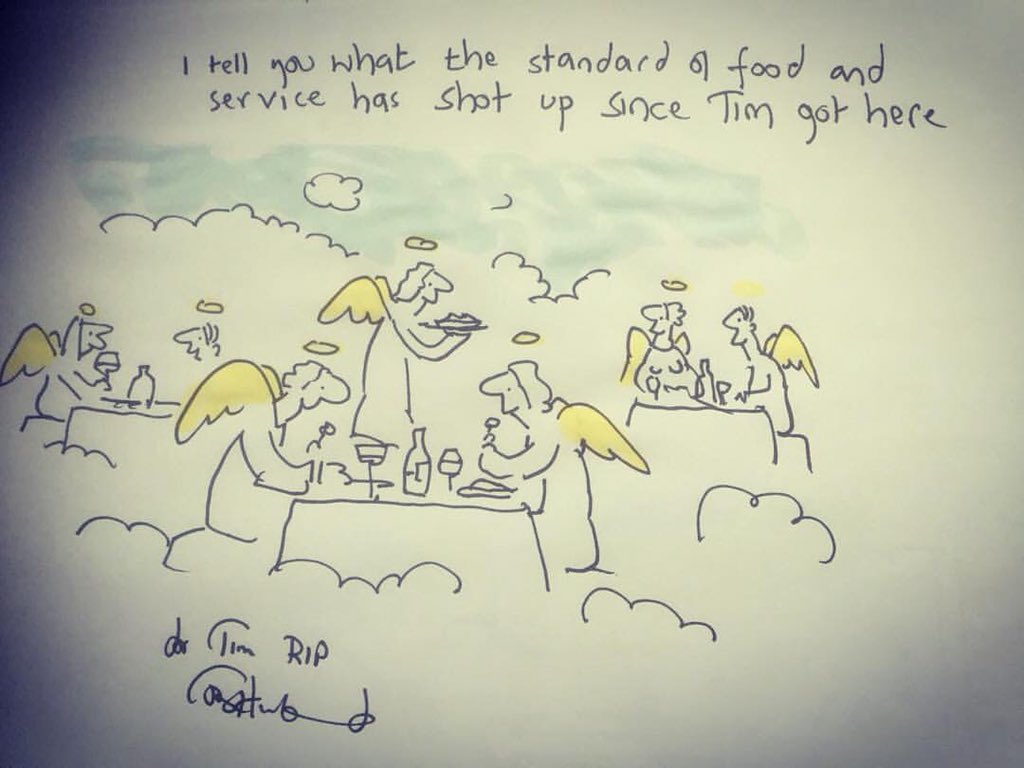 I tell you what the standard of food and
service has shot up since Tim got here
for Tim RIP